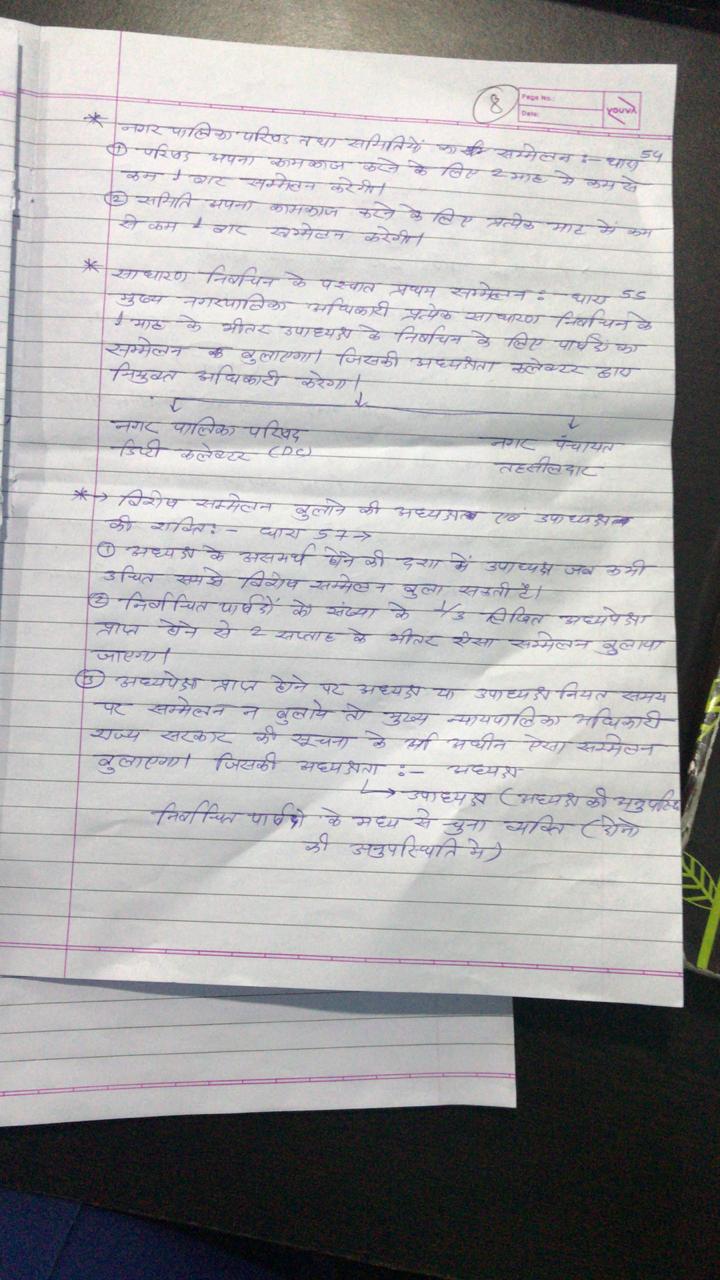 8
Page No.:
Date:
YOUVA
* नगर पालिका परिषद तथा समितियों का सम्मेलन :- धारा 54
① परिषद अपना कामकाज करने के लिए 2 माह में कम से
कम 1 बार सम्मेलन करेगी।
② समिति अपना कामकाज करने के लिए प्रत्येक माह में कम
से कम 1 बार सम्मेलन करेगी।
* साधारण निर्वाचन के पश्चात प्रथम सम्मेलन :- धारा 55
मुख्य नगरपालिका अधिकारी प्रत्येक साधारण निर्वाचन के
1 माह के भीतर उपाध्यक्ष के निर्वाचन के लिए पार्षदों का
सम्मेलन बुलाएगा। जिसकी अध्यक्षता कलेक्टर द्वारा
नियुक्त अधिकारी करेगा।
नगर पालिका परिषद नगर पंचायत
डिप्टी कलेक्टर (DC) तहसीलदार
*→ विशेष सम्मेलन बुलाने की अध्यक्ष एवं उपाध्यक्ष
की शक्ति :- धारा 57→
① अध्यक्ष के असमर्थ होने की दशा में उपाध्यक्ष जब कभी
उचित समझे विशेष सम्मेलन बुला सकती है।
② निर्वाचित पार्षदों की संख्या के 1/3 लिखित अध्यपेक्षा
प्राप्त होने से 2 सप्ताह के भीतर ऐसा सम्मेलन बुलाया
जाएगा।
③ अध्यपेक्षा प्राप्त होने पर अध्यक्ष या उपाध्यक्ष नियत समय
पर सम्मेलन न बुलाये तो मुख्य न्यायपालिका अधिकारी
राज्य सरकार की सूचना के अधीन ऐसा सम्मेलन
बुलाएगा। जिसकी अध्यक्षता :- अध्यक्ष
→ उपाध्यक्ष (अध्यक्ष की अनुपस्थि
निर्वाचित पार्षदों के मध्य से चुना व्यक्ति (दोनो
की अनुपस्थिति में)